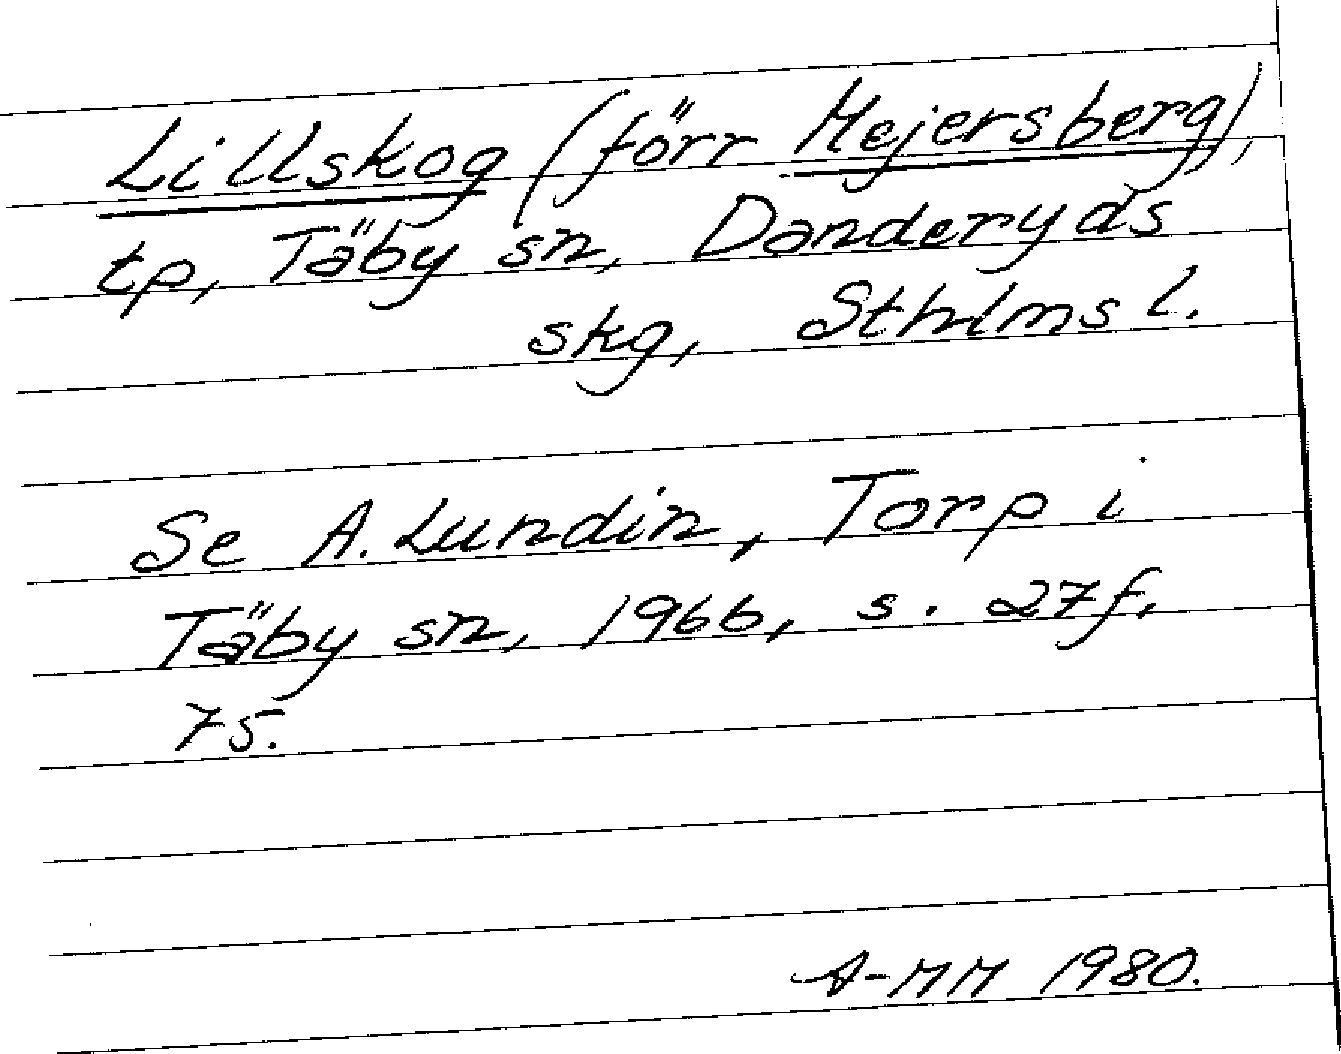 Lillskog (förr Mejersberg),
tp, Täby sn, Danderyds
skg, Sthlms l.
Se A. Lundin, Torp i
Täby sn, 1966, s. 27f,
75.
A-MM 1980.